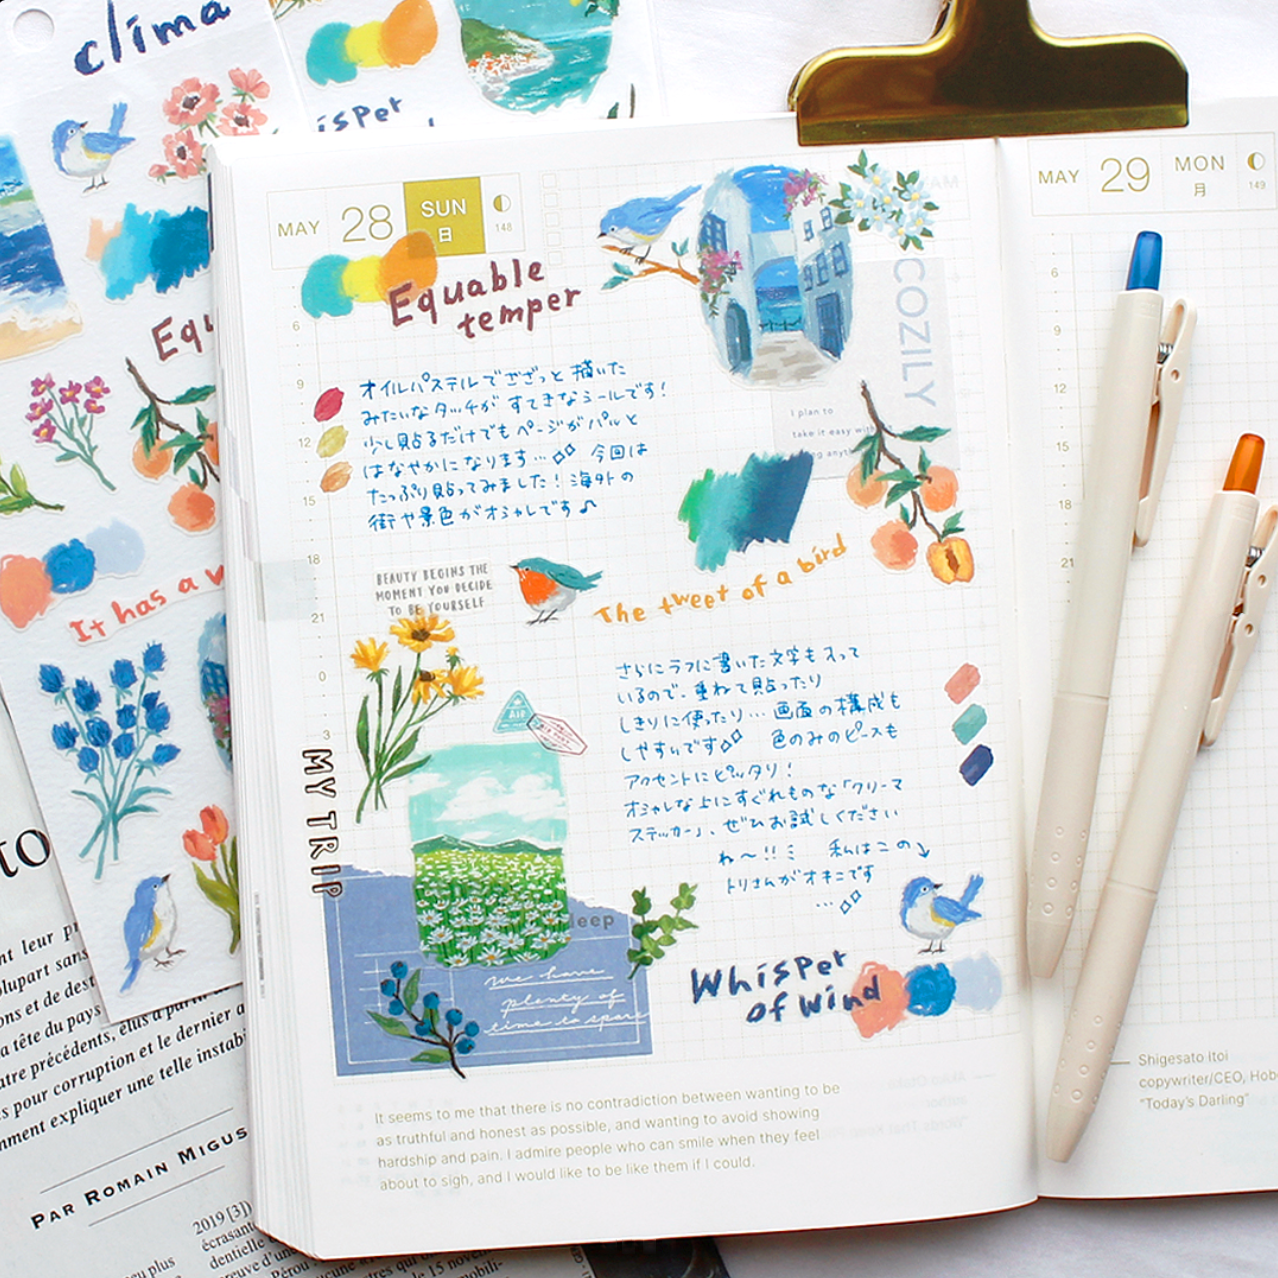 clima
MAY 28 SUN
日
148
MAY 29 MON
月
149
Equable
temper
オイルパステルでござっと描いた
みたいなタッチがすてきなシールです!
少し貼るだけでもページがパルと
はなやかになります… 今回は
たっぷり貼ってみました!海外の
街や景色がオシャレです♪
COZILY
I plan to
take it easy with
6
9
12
15
18
21
0
3
BEAUTY BEGINS THE
MOMENT YOU DECIDE
TO BE YOURSELF
The tweet of a bird
さらにラフに書いた文字も入って
いるので、重ねて貼ったり
しきりに使ったり… 画面の構成も
しやすいです 色のみのピースも
アクセントにピッタリ!
オシャレな上にすぐれものな「クリーマ
ステッカー」、ぜひお試しください
ね〜!! 私はこの
トリさんがオキニです
…
AIR
MY TRIP
deep
we have
plenty of
time to spare
Whisper
of wind
It seems to me that there is no contradiction between wanting to be
as truthful and honest as possible, and wanting to avoid showing
hardship and pain. I admire people who can smile when they feel
about to sigh, and I would like to be like them if I could.
6
9
12
15
18
21
Shigesato Itoi
copywriter/CEO, Hobo
"Today's Darling"
It has a
PAR ROMAIN MIGUS
2019 [3])